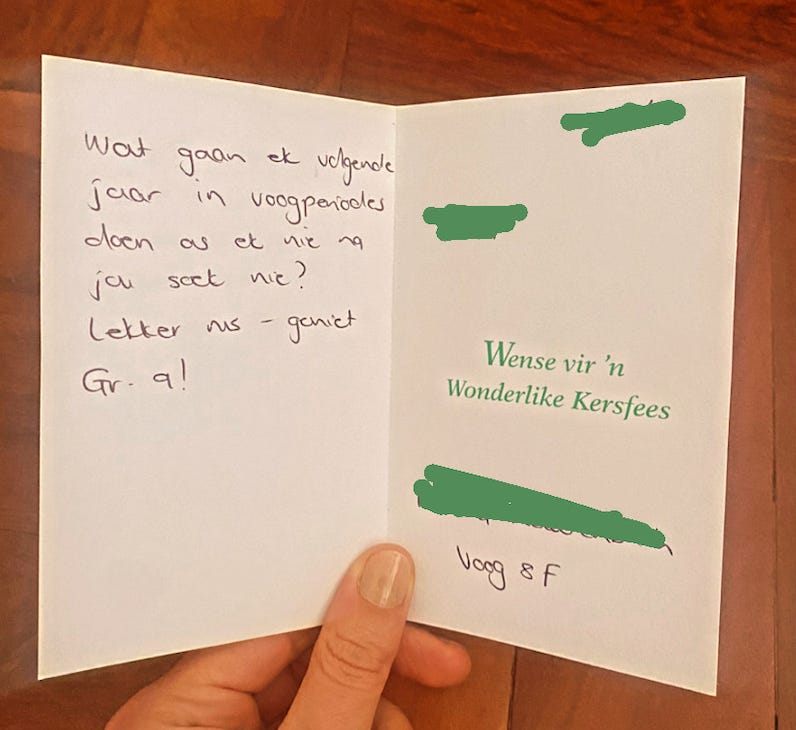 Wat gaan ek volgende
jaar in voogperiodes
doen as ek nie na
jou soek nie?
Lekker rus - geniet
Gr. 9!
Wense vir 'n
Wonderlike Kersfees
Voog 8F